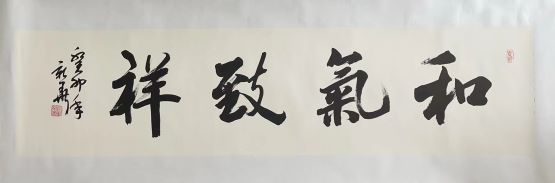 和氣致祥
癸卯年